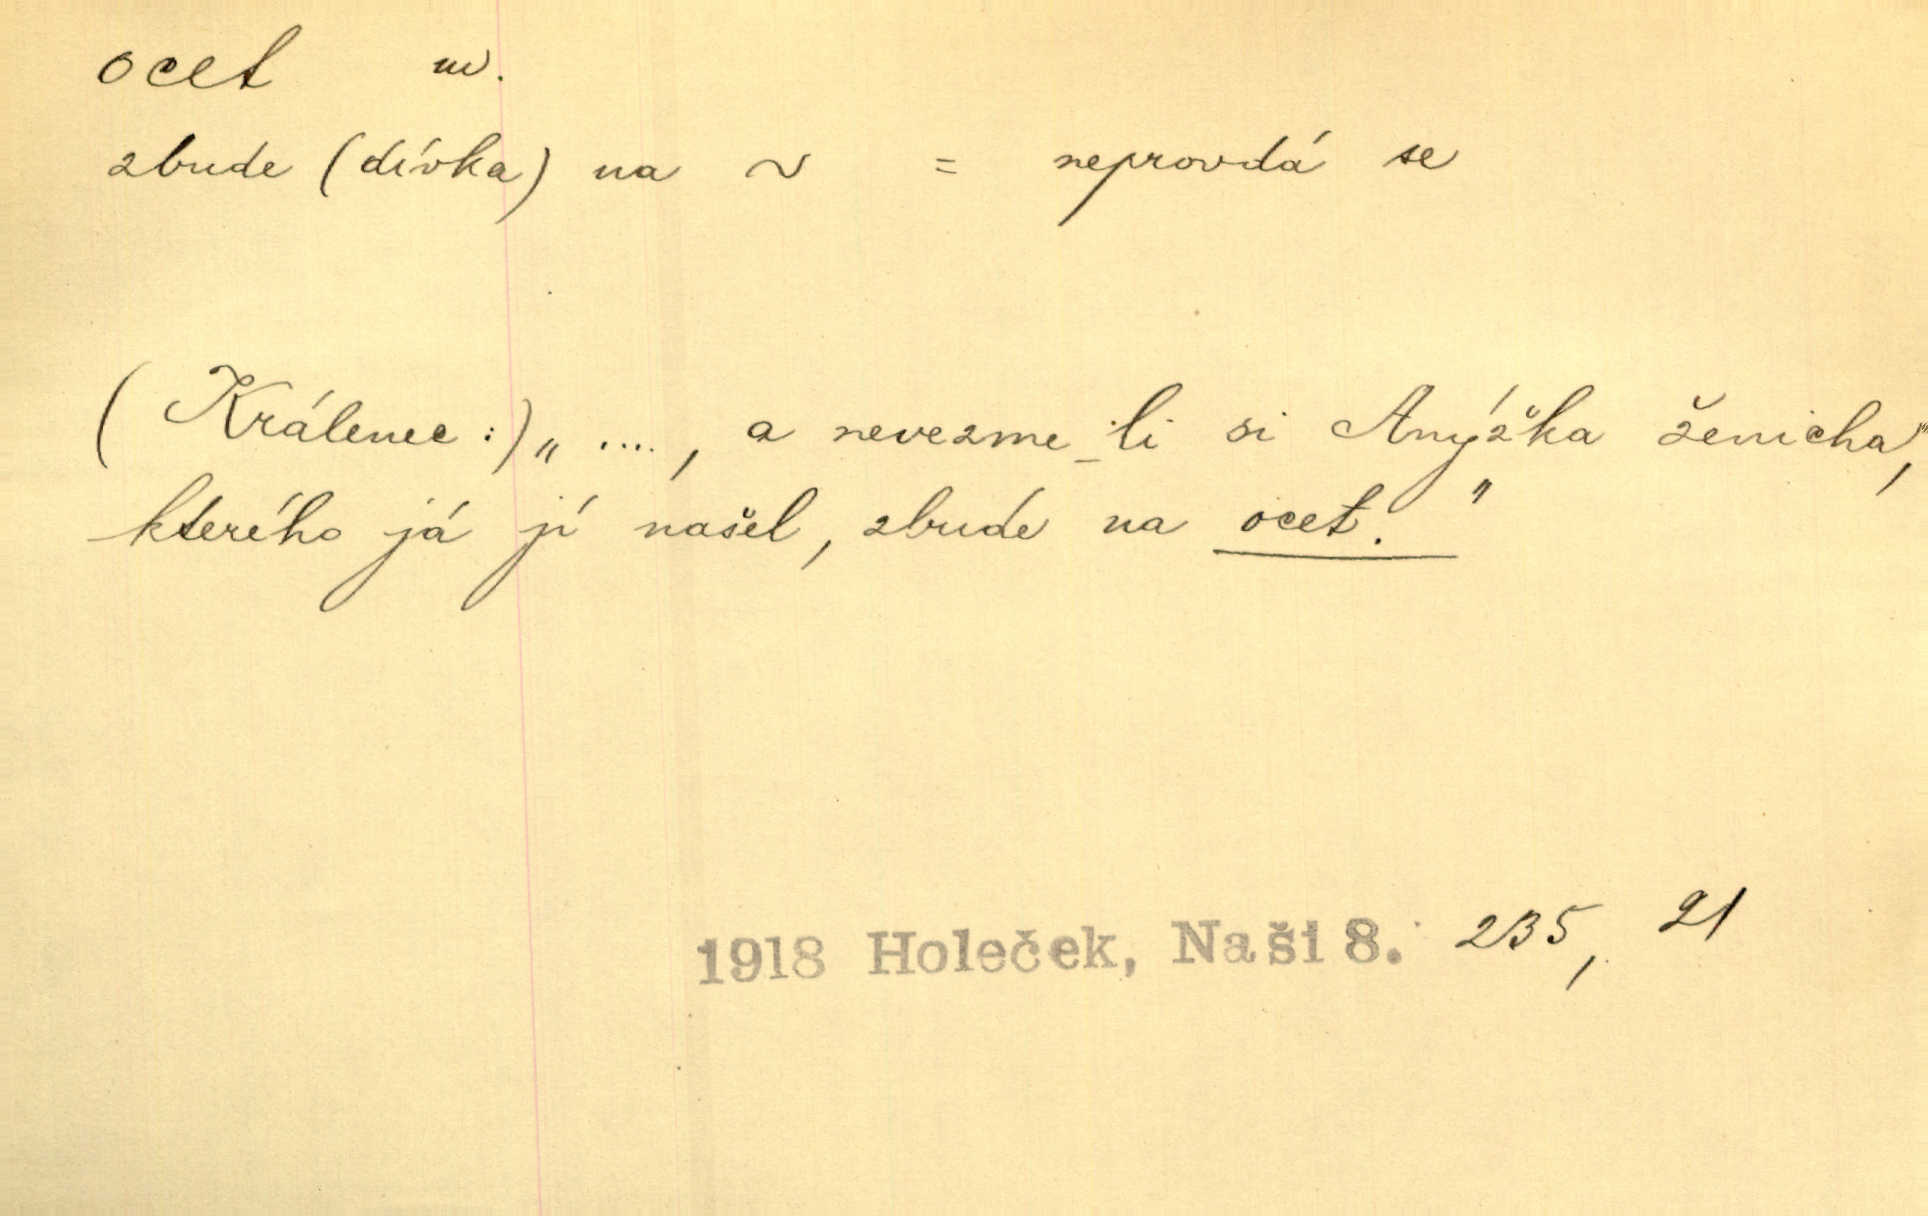 ocet m.
zbude (dívka) na ~ = neprovdá se
(Králenec:) „ ...., a nevezme-li si Anýžka ženicha,
kterého já jí našel, zbude na ocet."
1918 Holeček, Naši 8. 235, 21